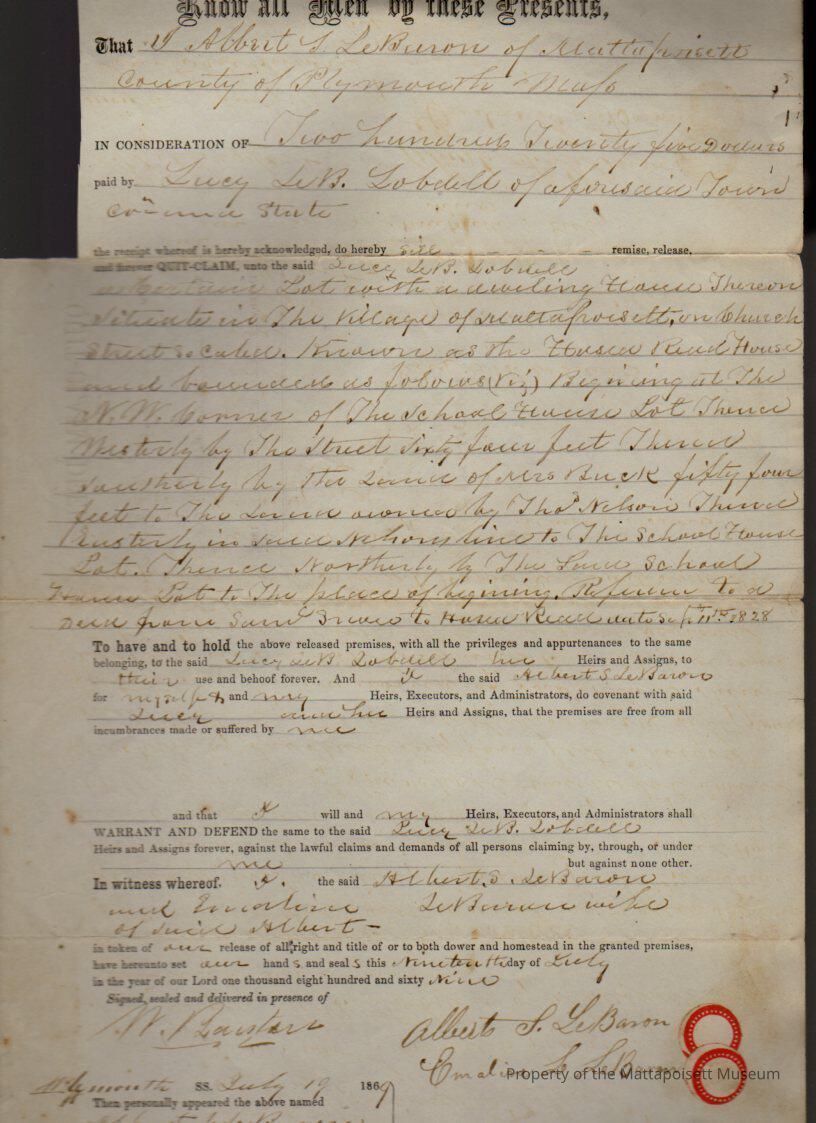 Know all Men by these Presents,
That I Albert S. LeBaron of Mattapoisett
County of Plymouth Mass
IN CONSIDERATION OF Two hundred Twenty five Dollars
paid by Lucy LeB. Lobdell of aforesaid Town
Co- and State
the receipt whereof is hereby acknowledged, do hereby sell remise, release,
and forever QUIT-CLAIM, unto the said Lucy LeB. Lobdell
a certain Lot with a dwelling House Thereon
Situate in The Village of Mattapoisett, on Church
Street so caled. Known as the Hosea Read House
and bounded as folows (Viz) Begining at The
N. W. Corner of The School House Lot Thence
Westerly by The Street Sixty four feet Thence
Southerly by the Land of Mrs Buck fifty four
feet to The Land owned by Thos Nelson Thence
Easterly in said Nelsons line to The School House
Lot. Thence Northerly by The Said School
House Lot to The place of begining. Reference to a
Deed from to Hosea Read 1828
To have and to hold the above released premises, with all the privileges and appurtenances to the same
belonging, to the said Lucy LeB Lobdell her Heirs and Assigns, to
their use and behoof forever. And I the said Albert S LeBaron
for myself & and my Heirs, Executors, and Administrators, do covenant with said
Lucy and her Heirs and Assigns, that the premises are free from all
incumbrances made or suffered by me
and that I will and my Heirs, Executors, and Administrators shall
WARRANT AND DEFEND the same to the said Lucy LeB. Lobdell
Heirs and Assigns forever, against the lawful claims and demands of all persons claiming by, through, or under
me but against none other.
In witness whereof, I. the said Albert. S. LeBaron
and Emaline LeBaron wife
of said Albert -
in token of our release of all right and title of or to both dower and homestead in the granted premises,
have hereunto set our hands and seals this Nineteenth day of July
in the year of our Lord one thousand eight hundred and sixty Nine
Signed, sealed and delivered in presence of
Albert S. LeBaron
Emaline LeBaron
Property of the Mattapoisett Museum
Plymouth SS. July 19 1869
Then personally appeared the above named